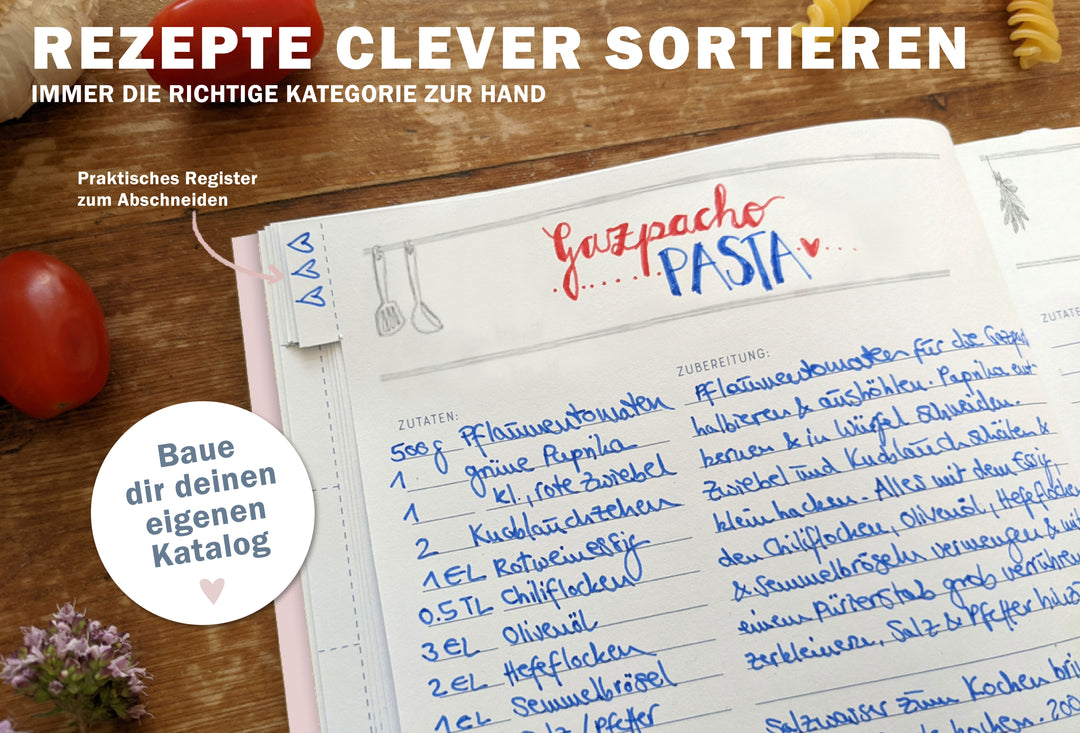 REZEPTE CLEVER SORTIEREN
IMMER DIE RICHTIGE KATEGORIE ZUR HAND
Praktisches Register
zum Abschneiden
Baue
dir deinen
eigenen
Katalog
Gazpacho
PASTA
ZUTATEN:
500g Pflaumentomaten
1 grüne Paprika
1 kl., rote Zwiebel
2 Knoblauchzehen
1 EL Rotweinessig
0.5 TL Chiliflocken
3 EL Olivenöl
2 EL Hefeflocken
1 EL Semmelbrösel
Salz/Pfeffer
ZUBEREITUNG:
Pflaumentomaten für die
halbieren & aushöhlen. Paprika ent-
kernen & in Würfel schneiden.
Zwiebel und Knoblauch schälen &
klein hacken. Alles mit dem Essig,
den Chiliflocken, Olivenöl, Hefeflocken
& Semmelbröseln vermengen & mit
einem Pürierstab grob
zerkleinern, Salz & Pfeffer
Salzwasser zum Kochen
kochen. 200
ZUTATE